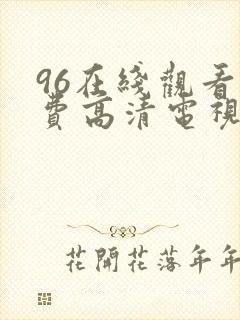 96在綫觀看
費高清電視
花開花落年年